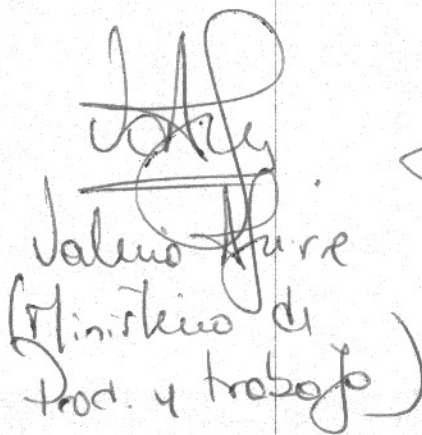 Valerio
(Ministerio de
Prod. y trabajo)